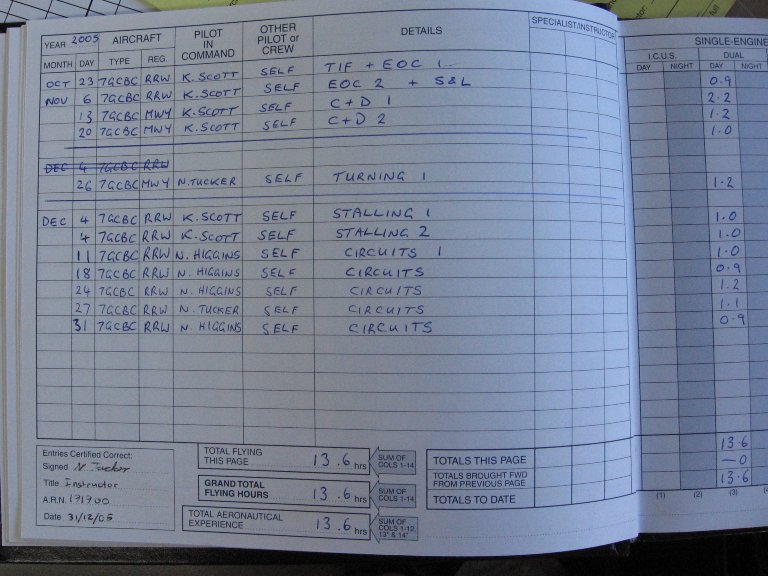 YEAR 2005 AIRCRAFT PILOT IN COMMAND OTHER PILOT or CREW DETAILS SPECIALIST/INSTRUCTOR SINGLE-ENGINE
MONTH DAY TYPE REG. I.C.U.S. DUAL
DAY NIGHT DAY NIGHT
OCT 23 7GCBC RRW K. SCOTT SELF TIF + EOC 1 0.9
NOV 6 7GCBC RRW K. SCOTT SELF EOC 2 + S&L 2.2
13 7GCBC MWY K. SCOTT SELF C+D 1 1.2
20 7GCBC MWY K. SCOTT SELF C+D 2 1.0
DEC 4 7GCBC RRW
26 7GCBC MWY N. TUCKER SELF TURNING 1 1.2
DEC 4 7GCBC RRW K. SCOTT SELF STALLING 1 1.0
4 7GCBC RRW K. SCOTT SELF STALLING 2 1.0
11 7GCBC RRW N. HIGGINS SELF CIRCUITS 1 1.0
18 7GCBC RRW N. HIGGINS SELF CIRCUITS 0.9
24 7GCBC RRW N. HIGGINS SELF CIRCUITS 1.2
27 7GCBC RRW N. TUCKER SELF CIRCUITS 1.1
31 7GCBC RRW N. HIGGINS SELF CIRCUITS 0.9
Entries Certified Correct:
Signed N. Tucker
Title Instructor
A.R.N. 171900
Date 31/12/05
TOTAL FLYING THIS PAGE 13.6 hrs SUM OF COLS 1-14
GRAND TOTAL FLYING HOURS 13.6 hrs SUM OF COLS 1-14
TOTAL AERONAUTICAL EXPERIENCE 13.6 hrs SUM OF COLS 1-12, 13* & 14*
TOTALS THIS PAGE 13.6
TOTALS BROUGHT FWD FROM PREVIOUS PAGE —0
TOTALS TO DATE 13.6
(1) (2) (3)